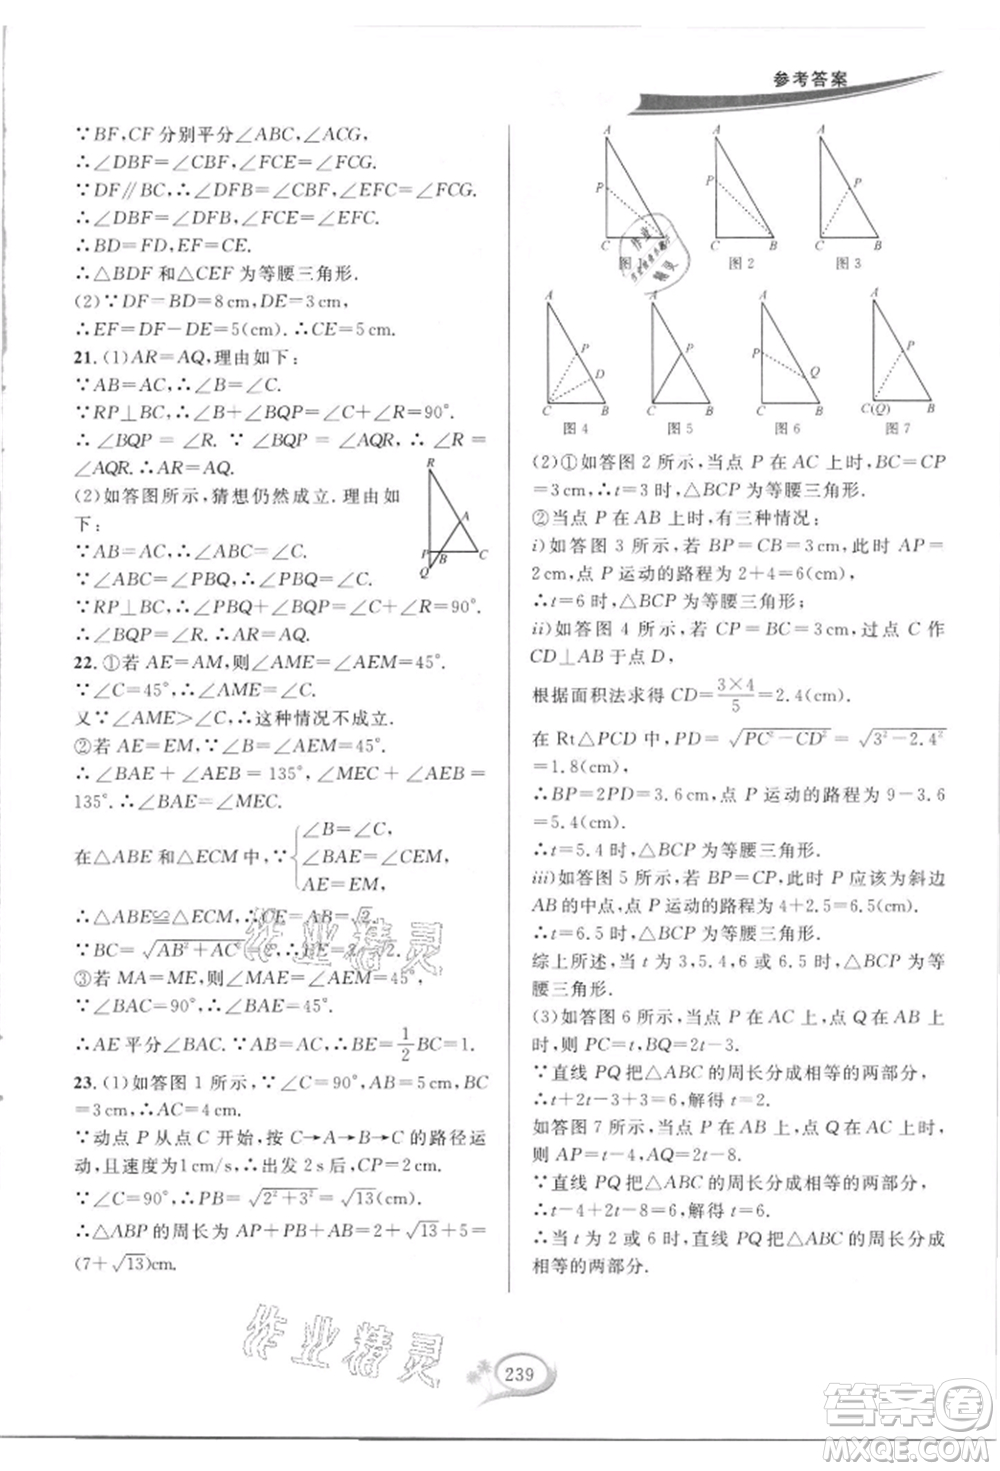 参考答案
∵BF,CF 分别平分∠ABC,∠ACG,
∴∠DBF=∠CBF,∠FCE=∠FCG.
∵DF∥BC,∴∠DFB=∠CBF,∠EFC=∠FCG.
∴∠DBF=∠DFB,∠FCE=∠EFC.
∴BD=FD,EF=CE.
∴△BDF和△CEF为等腰三角形.
(2)∵DF=BD=8cm,DE=3cm,
∴EF=DF-DE=5(cm).∴CE=5cm.
21.(1)AR=AQ,理由如下:
∵AB=AC,∴∠B=∠C.
∵RP⊥BC,∴∠B+∠BQP=∠C+∠R=90°.
∴∠BQP=∠R. ∵∠BQP=∠AQR,∴∠R=
∠AQR.∴AR=AQ.
(2)如答图所示,猜想仍然成立.理由如
下:
∵AB=AC,∴∠ABC=∠C.
∵∠ABC=∠PBQ,∴∠PBQ=∠C.
∵RP⊥BC,∴∠PBQ+∠BQP=∠C+∠R=90°.
∴∠BQP=∠R.∴AR=AQ.
R
A
P
B
C
Q
22.①若AE=AM,则∠AME=∠AEM=45°.
∵∠C=45°,∴∠AME=∠C.
又∵∠AME>∠C,∴这种情况不成立.
②若 AE=EM,∵∠B=∠AEM=45°.
∴∠BAE+∠AEB=135°,∠MEC+∠AEB=
135°.∴∠BAE=∠MEC.
在△ABE和△ECM中,∵{∠B=∠C, ∠BAE=∠CEM, AE=EM,
∴△ABE≌△ECM,∴CE=AB=√2.
∵BC=√AB²+AC²=2,∴BE=2-√2.
③若 MA=ME,∴∠MAE=∠AEM=45°.
∵∠BAC=90°,∴∠BAE=45°.
∴AE平分∠BAC.∵AB=AC,∴BE=1/2BC=1.
23.(1)如答图 1 所示,∵∠C=90°,AB=5cm,BC
=3cm,∴AC=4cm.
∵动点 P 从点 C 开始,按 C→A→B→C 的路径运
动,且速度为1cm/s,∴出发 2s后,CP=2cm.
∵∠C=90°,∴PB=√2²+3²=√13(cm)
∴△ABP的周长为 AP+PB+AB=2+√13+5=
(7+√13)cm.
A
P
C
图1
A
P
C
B
图2
A
P
C
B
图3
A
P
D
C
B
图4
A
P
C
B
图5
A
P
Q
C
B
图6
A
P
C(Q)
B
图7
(2)①如答图 2 所示,当点 P 在 AC 上时,BC=CP
=3cm,∴t=3时,△BCP为等腰三角形.
②当点 P 在 AB 上时,有三种情况:
i)如答图 3 所示,若 BP=CB=3cm,此时 AP=
2cm,点 P 运动的路程为 2+4=6(cm),
∴t=6时,△BCP为等腰三角形;
ii)如答图 4 所示,若 CP=BC=3cm,过点 C 作
CD⊥AB 于点 D,
根据面积法求得 CD=3×4/5=2.4(cm).
在 Rt△PCD 中,PD=√PC²-CD²=√3²-2.4²
=1.8(cm)
∴BP=2PD=3.6cm,点 P 运动的路程为 9-3.6
=5.4(cm).
∴t=5.4时,△BCP为等腰三角形.
iii)如答图 5 所示,若 BP=CP,此时 P 应该为斜边
AB 的中点,点 P 运动的路程为 4+2.5=6.5(cm).
∴t=6.5时,△BCP为等腰三角形.
综上所述,当 t 为 3,5.4,6 或 6.5 时,△BCP为等
腰三角形.
(3)如答图 6 所示,当点 P 在 AC 上,点 Q 在 AB 上
时,则 PC=t,BQ=2t-3.
∵直线 PQ把△ABC的周长分成相等的两部分,
∴t+2t-3+3=6,解得t=2.
如答图 7 所示,当点 P 在 AB 上,点 Q 在 AC 上时,
则AP=t-4,AQ=2t-8.
∵直线 PQ把△ABC的周长分成相等的两部分,
∴t-4+2t-8=6.∴t=6.
∴当 t 为 2 或 6 时,直线 PQ把△ABC的周长分成
相等的两部分.
作业精灵
作业精灵
239
答案圈
MXQE.COM